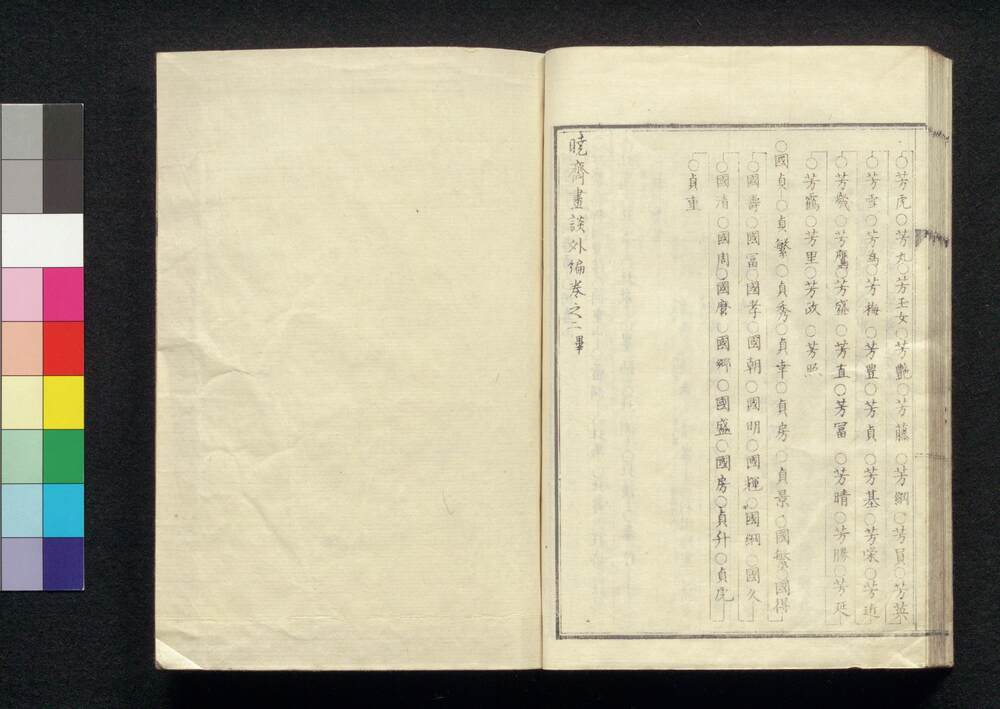 ○芳虎○芳丸○芳玉女○芳艶○芳藤○芳綱○芳員○芳葉
○芳雪○芳為○芳梅○芳豊○芳貞○芳基○芳栄○芳近
○芳幾○芳鷹○芳盛○芳直○芳冨○芳晴○芳勝○芳延
○芳鶴○芳里○芳政○芳照
○國貞○貞繁○貞秀○貞幸○貞房○貞景○國繁○國得
○國壽○國冨○國孝○國朝○國明○國輝○國綱○國久
○國清○國周○國麿○國郷○國盛○國房○貞升○貞虎
○貞重
暁齋畫談外編巻之二畢